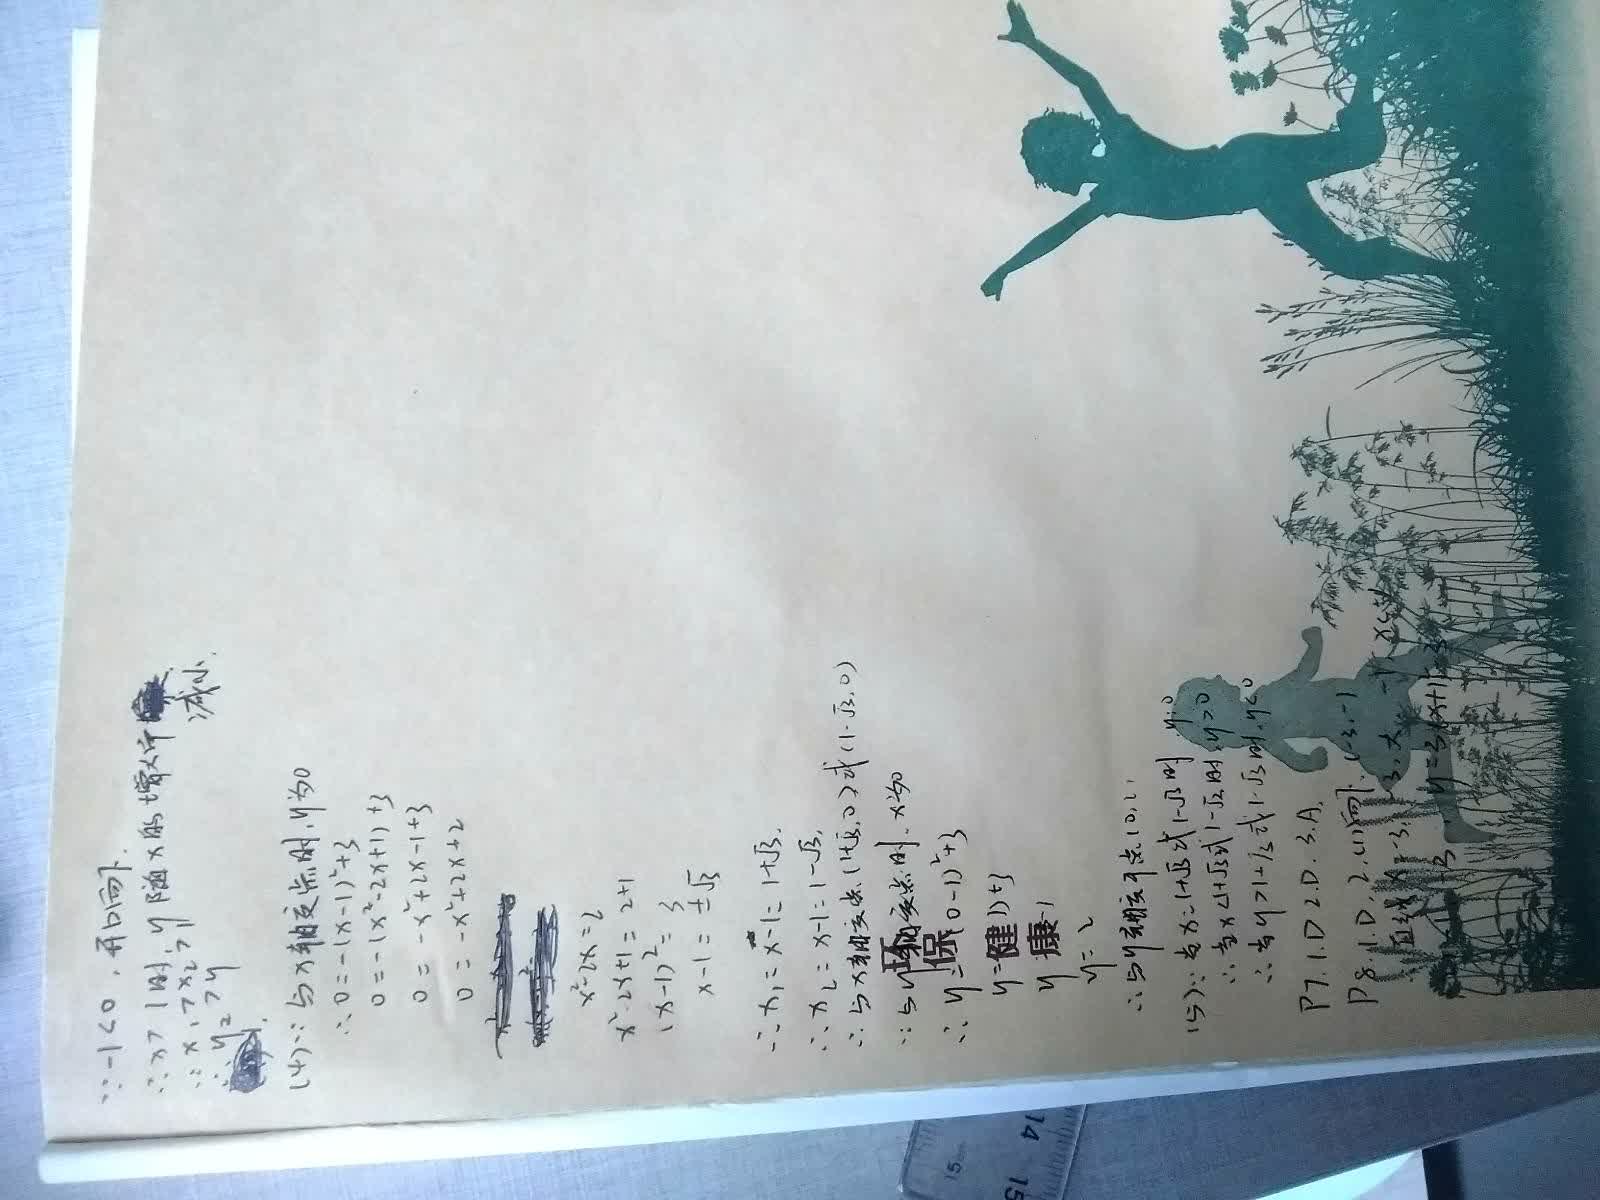 ∵-1<0,开口向下.
∴x>1时,y随x的增大而减小.
∵x₁>x₂>1
∴y₂>y₁.
(4)∵与x轴交点时,y为0
∴0=-(x-1)²+3
0=-(x²-2x+1)+3
0=-x²+2x-1+3
0=-x²+2x+2
x²-2x=2
x²-2x+1=2+1
(x-1)²=3
x-1=±√3
∴x₁=x-1=1+√3.
∴x₂=x-1=1-√3.
∴与x轴交点(1+√3,0)或(1-√3,0)
∵与y轴交点时.x为0
∴y=-(0-1)²+3
y=
y
y=2
∴与y轴交于点(0,2
(5)∵当x=1+√3或1-√3时 y=0
∴当x<1+√3或1-√2时.y>0
∴当y>1+√3或1-√3时.y<0
P7.1.D 2.D.3.A.
P8.1.D.2.(1)向下.(-3,-1
直线x=-3.
环
保
健
康
15cm
14
15